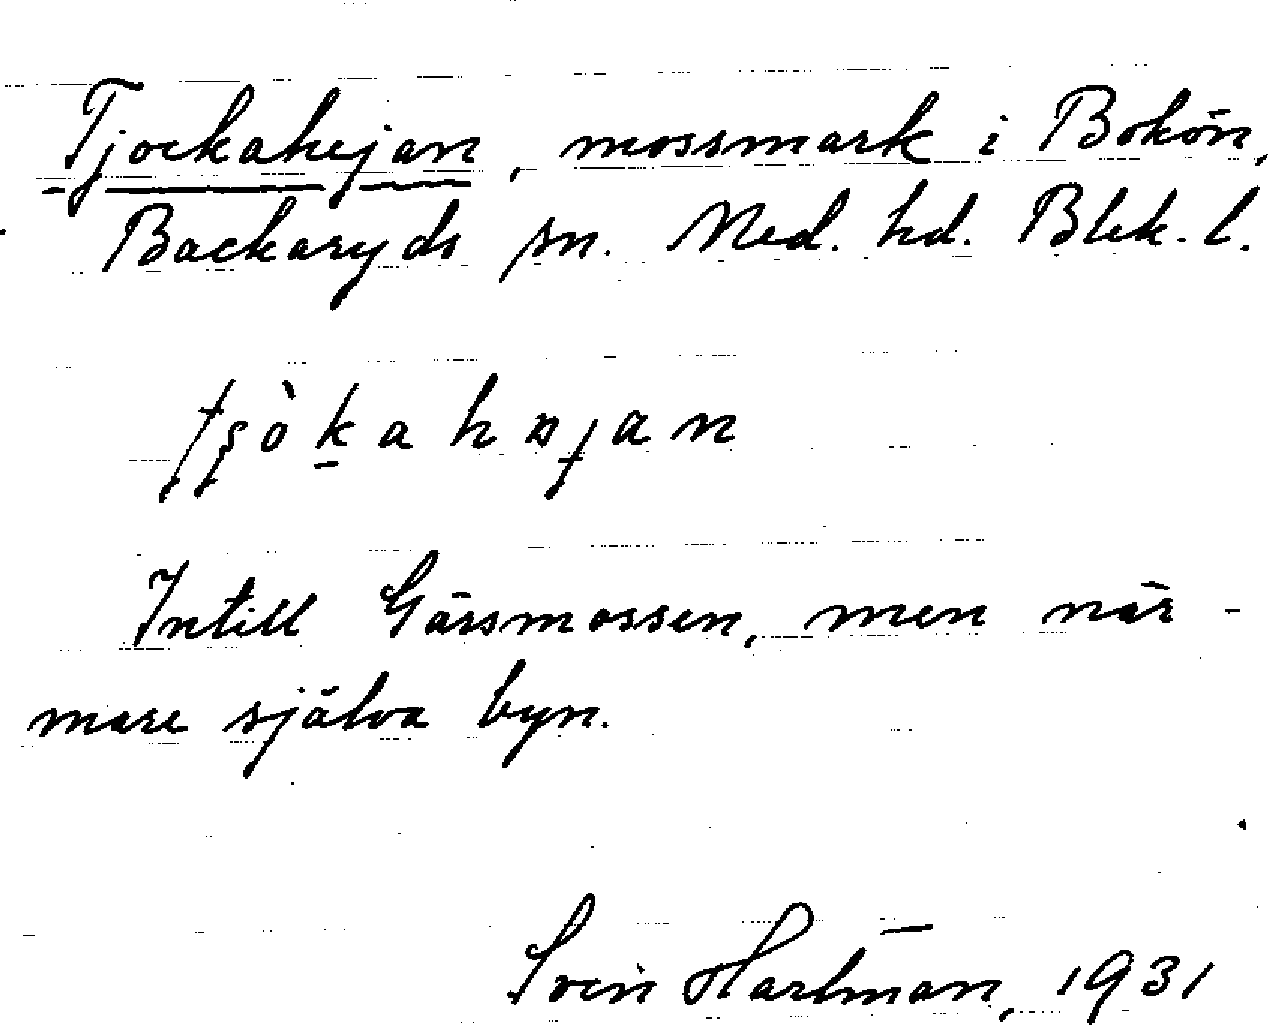 Tjockahejan, mossmark i Bokön,
Backaryds sn. Med. hd. Blek. l.
Intill Gårsmossen, men när-
mare själva byn.
Sven Hartman, 1931